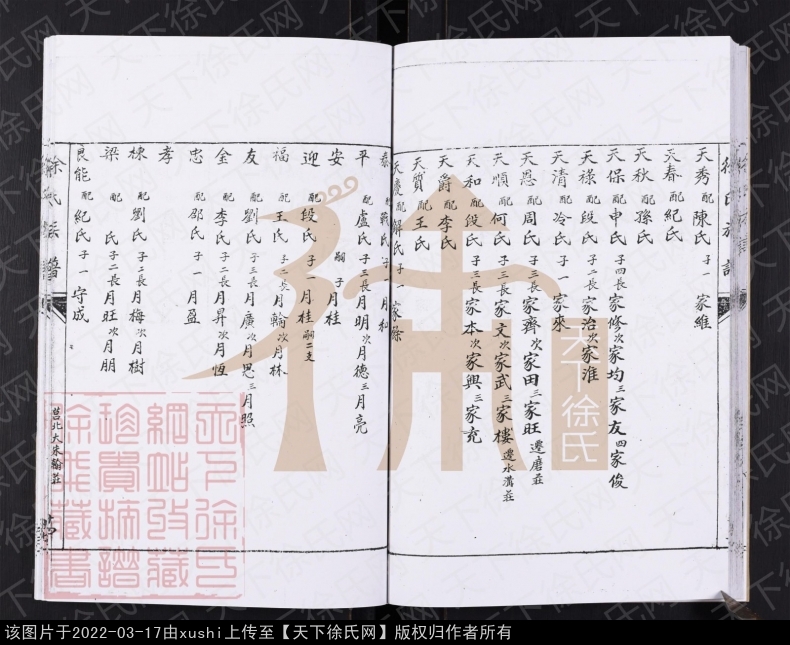 天秀 配陳氏 子一 家維
天春 配紀氏
天秋 配孫氏
天保 配申氏 子四長家修次家均三家友四家俊
天祿 配段氏 子二長家治次家淮
天清 配冷氏 子一 家來
天恩 配周氏 子三長家齊次家田三家旺遷磨莊
天順 配何氏 子三長家文次家武三家樓遷水溝莊
天和 配段氏 子三長家本次家興三家充
天爵 配李氏
天質 配王氏
天慶 配解氏 子一 家餘
泰 配 氏 子一 月和
平 配盧氏 子三長月明次月德三月亮
安 嗣子 月桂
迎 配段氏 子一月桂嗣二支
福 配王氏 子二長月輪次月林
友 配劉氏 子三長月廣次月思三月照
全 配李氏 子二長月昇次月恆
忠 配邵氏 子一 月盈
孝
棟 配劉氏 子二長月梅次月樹
梁 配 氏 子二長月旺次月朋
良能 配紀氏 子一 守成
徐氏族譜
莒北大朱翰莊
天下徐氏
天下徐氏
網站收藏
珍貴譜
徐氏藏書
天下徐氏网
该图片于2022-03-17由xushi上传至【天下徐氏网】版权归作者所有